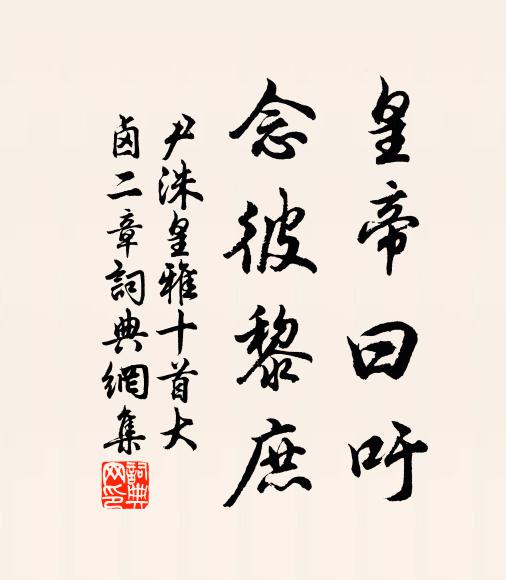 皇帝曰吁
念彼黎庶
尹洙皇雅十首大
鹵二章詞典網集
詞典网印